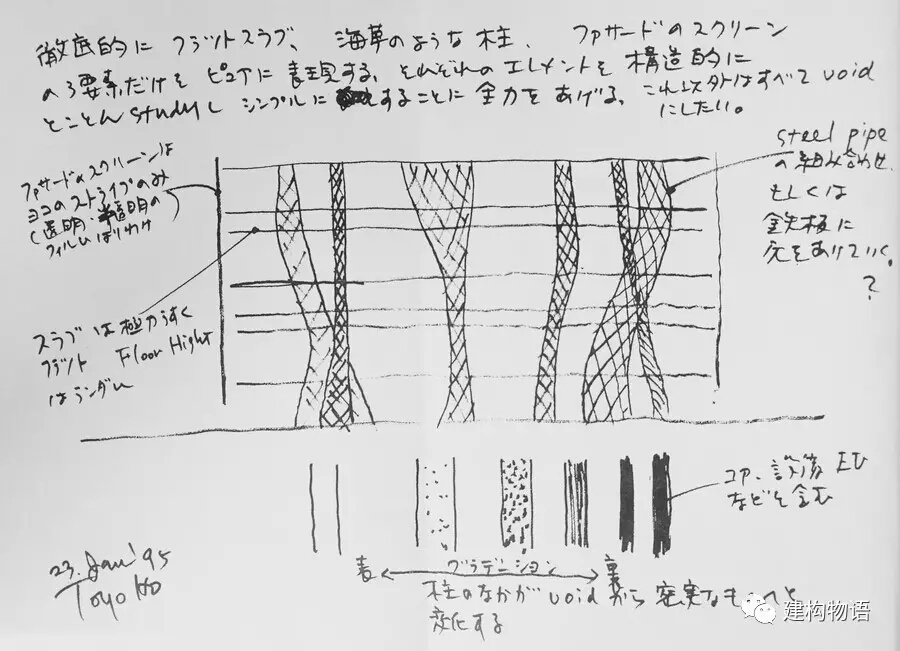 徹底的に フラットスラブ、海草のような柱、ファサードのスクリーン
の3要素だけを ピュアに表現する、それぞれのエレメントを構造的に
とことんstudyし シンプルにすることに全力をあげる、これ以外はすべてvoid
にしたい。
ファサードのスクリーンは
ヨコのストライプのみ
(透明・半透明の
フィルムはりわけ
スラブは極力うすく
フラット Floor Hight
はランダム
steel pipe
の組み合わせ、
もしくは
鉄板に
穴をあけていく。
?
コア、設備 EV
などを含む
表 グラデーション 裏
柱のなかがvoidから 密実なものへと
変化する
23. Jan '95
Toyo Ito
建构物语